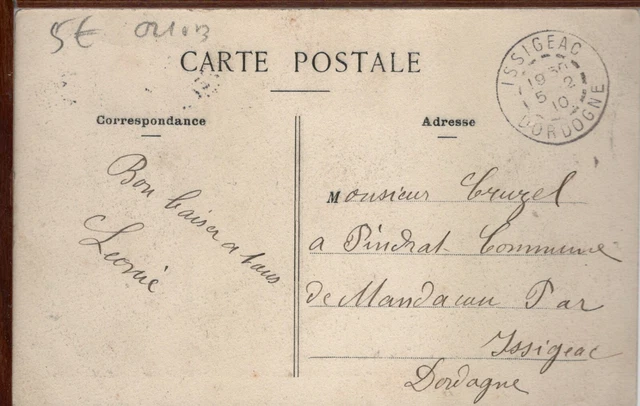 5€
CARTE POSTALE
ISSIGEAC
19 30
5 2
10
DORDOGNE
Correspondance
Adresse
Bon baiser a tous
Leonie
Monsieur Cruzel
a Pindrat Commune
de Mandacou Par
Issigeac
Dordogne